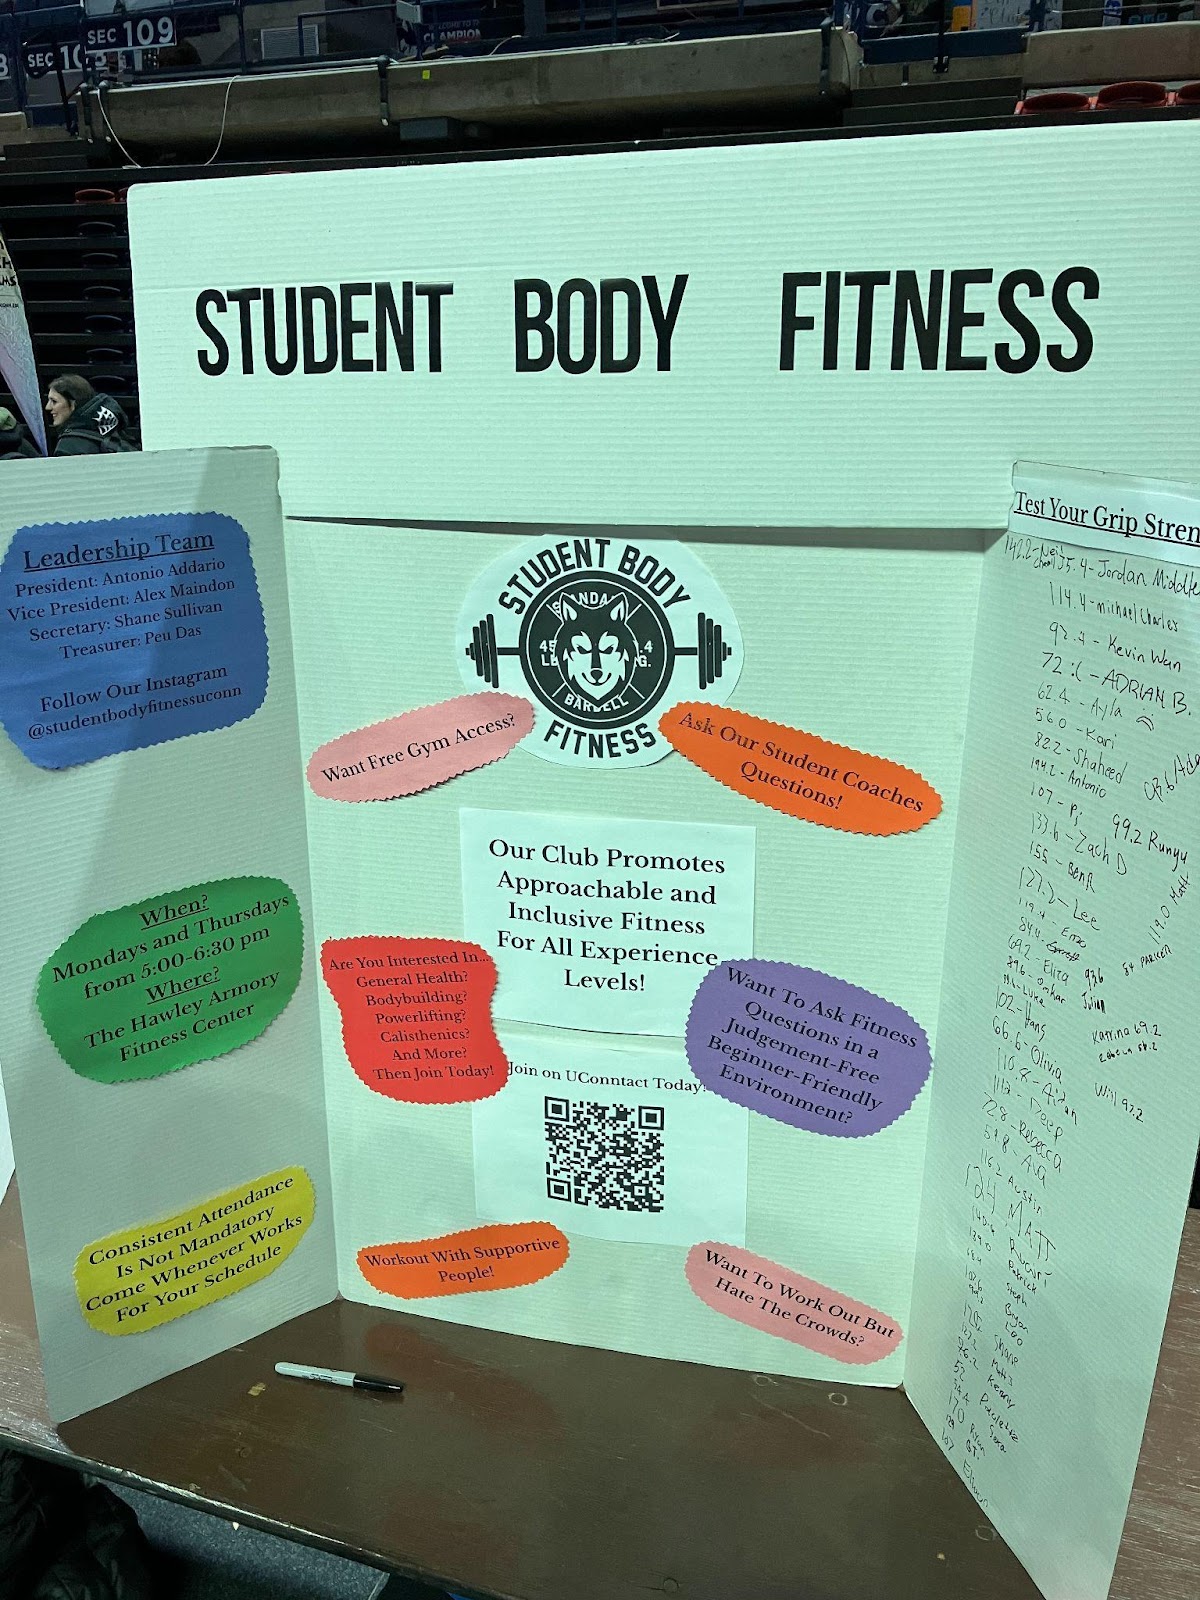 SEC 109
SEC 10
CHAMPION
STUDENT BODY FITNESS
Leadership Team
President: Antonio Addario
Vice President: Alex Maindon
Secretary: Shane Sullivan
Treasurer: Peu Das
Follow Our Instagram
@studentbodyfitnessuconn
When?
Mondays and Thursdays
from 5:00-6:30 pm
Where?
The Hawley Armory
Fitness Center
Consistent Attendance
Is Not Mandatory
Come Whenever Works
For Your Schedule
STUDENT BODY
45
BARBELL
FITNESS
Want Free Gym Access?
Ask Our Student Coaches
Questions!
Our Club Promotes
Approachable and
Inclusive Fitness
For All Experience
Levels!
Are You Interested In...
General Health?
Bodybuilding?
Powerlifting?
Calisthenics?
And More?
Then Join Today!
Want To Ask Fitness
Questions in a
Judgement-Free
Beginner-Friendly
Environment?
Join on UConntact Today!
Workout With Supportive
People!
Want To Work Out But
Hate The Crowds?
Test Your Grip Stren
Jordan Middle
114.4 - michael Charles
92.4 - Kevin Wan
ADRIAN B.
62.4 - Ayla
56.0 - Kari
82.2 - Shaheed
194.2 - Antonio
107 - Pj
99.2 Runyu
133.6 - Zach D
155 - Ben R
119.0 Matt
127.2 - Lee
119.4 - Enzo
84.4
69.2 - Eliza
84 PARKER
Julian
Luke
102 - Hans
Katrina 69.2
66.6 - Olivia
110.8 - Aidan
Will 92.2
Deep
72.8 - Rebecca
54.8 - Ava
116.2 Austin
124 MATT
Patrick
Steph
Bryan
LEO
Shane
Matt
76.2 Kenny
52
54.4 Sara
170 Ryan
107